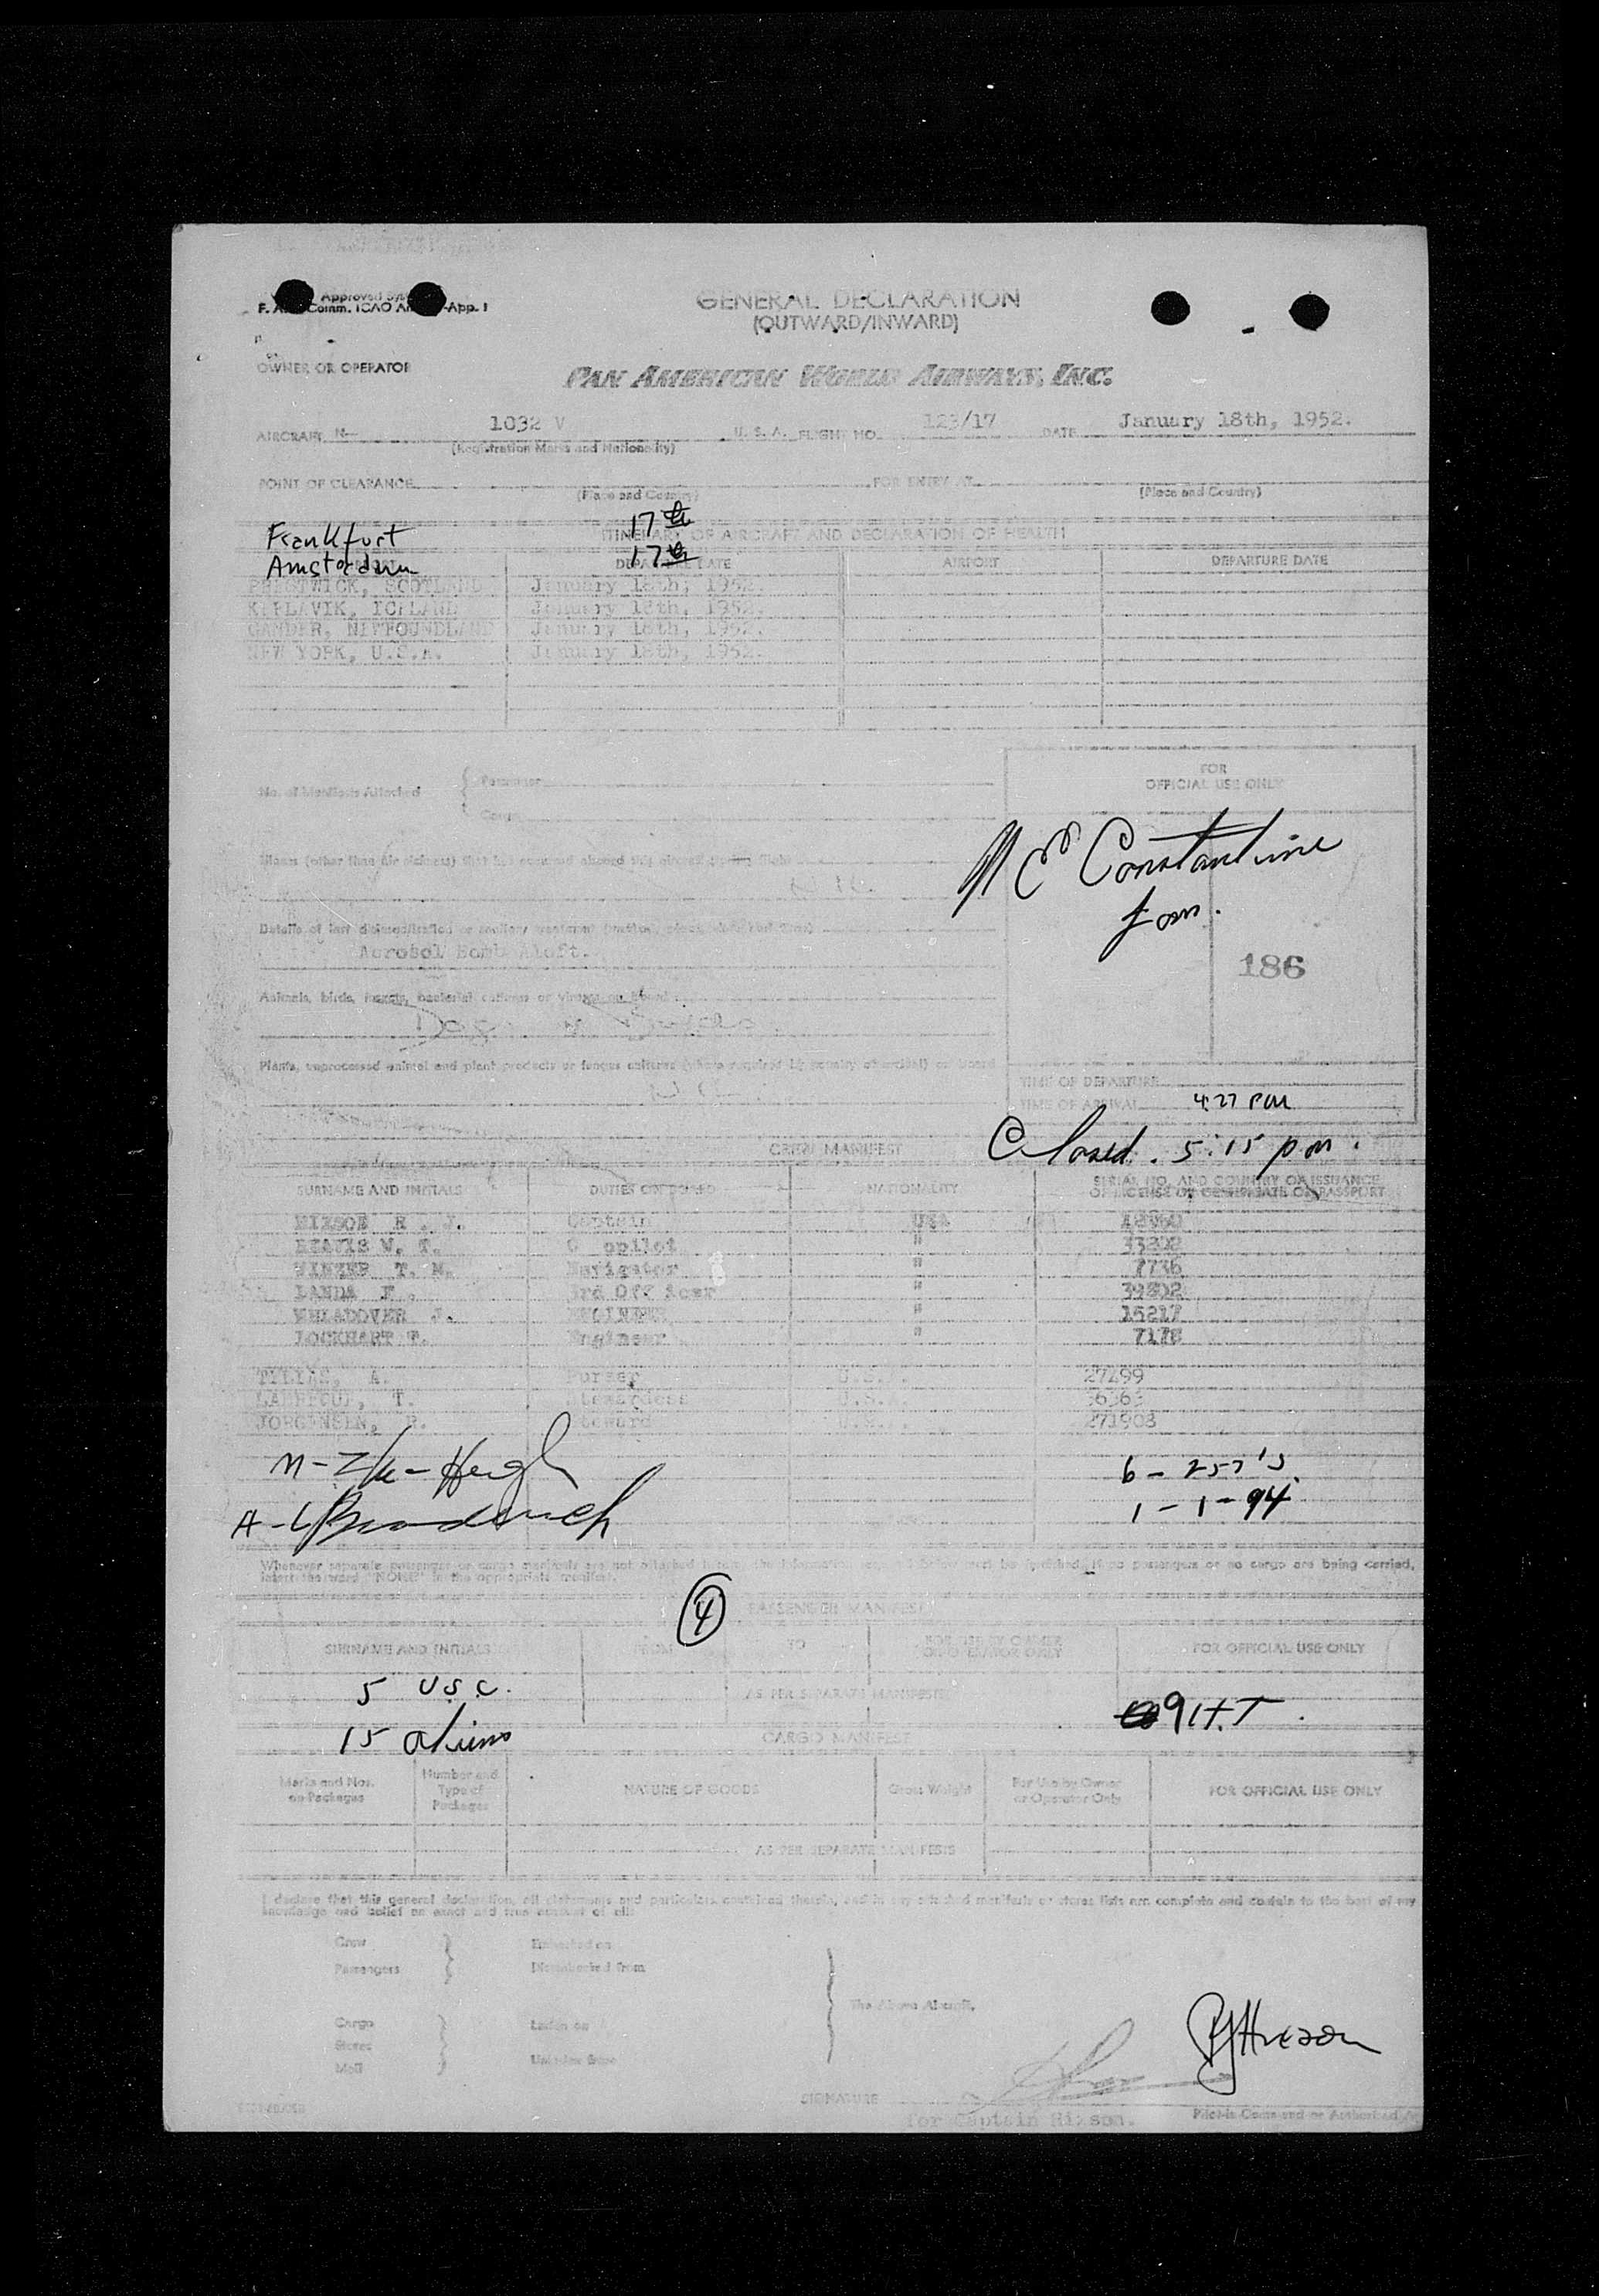 Approved
F. Comm. ICAO App. 1
GENERAL DECLARATION
(OUTWARD/INWARD)
OWNER OR OPERATOR
PAN AMERICAN WORLD AIRWAYS, INC.
AIRCRAFT N- 1032 V U. S. A. FLIGHT NO. 123/17 DATE January 18th, 1952.
(Registration Marks and Nationality)
POINT OF CLEARANCE FOR ENTRY AT
(Place and Country) (Place and Country)
Frankfurt 17th
ITINERARY OF AIRCRAFT AND DECLARATION OF HEALTH
Amsterdam 17th
DEPARTURE DATE AIRPORT DEPARTURE DATE
PRESTWICK, SCOTLAND January 18th, 1952.
KEFLAVIK, ICELAND January 18th, 1952.
GANDER, NEWFOUNDLAND January 18th, 1952.
NEW YORK, U.S.A. January 18th, 1952.
FOR
OFFICIAL USE ONLY
No. of Manifests Attached
Passenger
Cargo
N E Constantine
Illness (other than air sickness) that has occurred aboard this aircraft during flight
Details of last disinsectisation or sanitary treatment
Aerosol Bomb Aloft.
186
Animals, birds, insects, bacterial cultures or viruses on board
Plants, unprocessed animal and plant products or fungus cultures (where required by country of arrival) on board
TIME OF DEPARTURE
TIME OF ARRIVAL 4:27 PM
Closed. 5:15 pm.
CREW MANIFEST
SURNAME AND INITIALS DUTIES ON BOARD NATIONALITY SERIAL NO. AND COUNTRY OF ISSUANCE
OF LICENSE OR CERTIFICATE OR PASSPORT
R. J. Captain USA
W. T. Copilot "
WINZER T. M. Navigator " 7736
LANDA F. 3rd Officer " 39802
J. ENGINEER " 15217
LOCKHART T. Engineer " 7178
A. Purser U.S.A. 27499
T. Stewardess U.S.A. 36363
JORGENSEN, Steward U.S.A. 271903
6 - 257's
1 - 1 - 94
Whenever separate passenger or cargo manifests are not attached the information must be furnished. If no passengers or no cargo are being carried,
insert the word "NONE" in the appropriate manifest.
4
PASSENGER MANIFEST
SURNAME AND INITIALS FROM TO FOR USE BY OWNER
OR OPERATOR ONLY FOR OFFICIAL USE ONLY
5 U.S.C.
AS PER SEPARATE MANIFESTS
9 H.T.
15 aliens
CARGO MANIFEST
Marks and Nos.
on Packages Number and
Type of
Packages NATURE OF GOODS Gross Weight For Use by Owner
or Operator Only FOR OFFICIAL USE ONLY
AS PER SEPARATE MANIFESTS
I declare that this general declaration, all statements and particulars contained therein, and in any attached manifests or stores lists are complete and contain to the best of my
knowledge and belief an exact and true account of all:
Crew Embarked on
Passengers Disembarked from
The Above Aircraft.
Cargo Laden on
Stores
Mail Unladen from
RJ Hixson
SIGNATURE
for Captain Hixson. Pilot-in-Command or Authorized